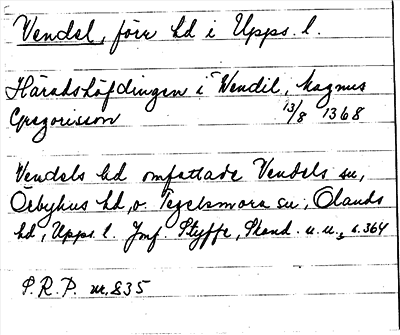 Vendel, förr hd i Upps. l.
Häradshöfdingen i Wendil, Magnus
Gregorisson 13/8 1368
Vendels hd omfattade Vendels sn,
Örbyhus hd, o. Tegelsmora sn, Olands
hd, Upps. l. Jmf. Styffe, Skand. u. u.₃ s. 364
P.R.P. nr. 835